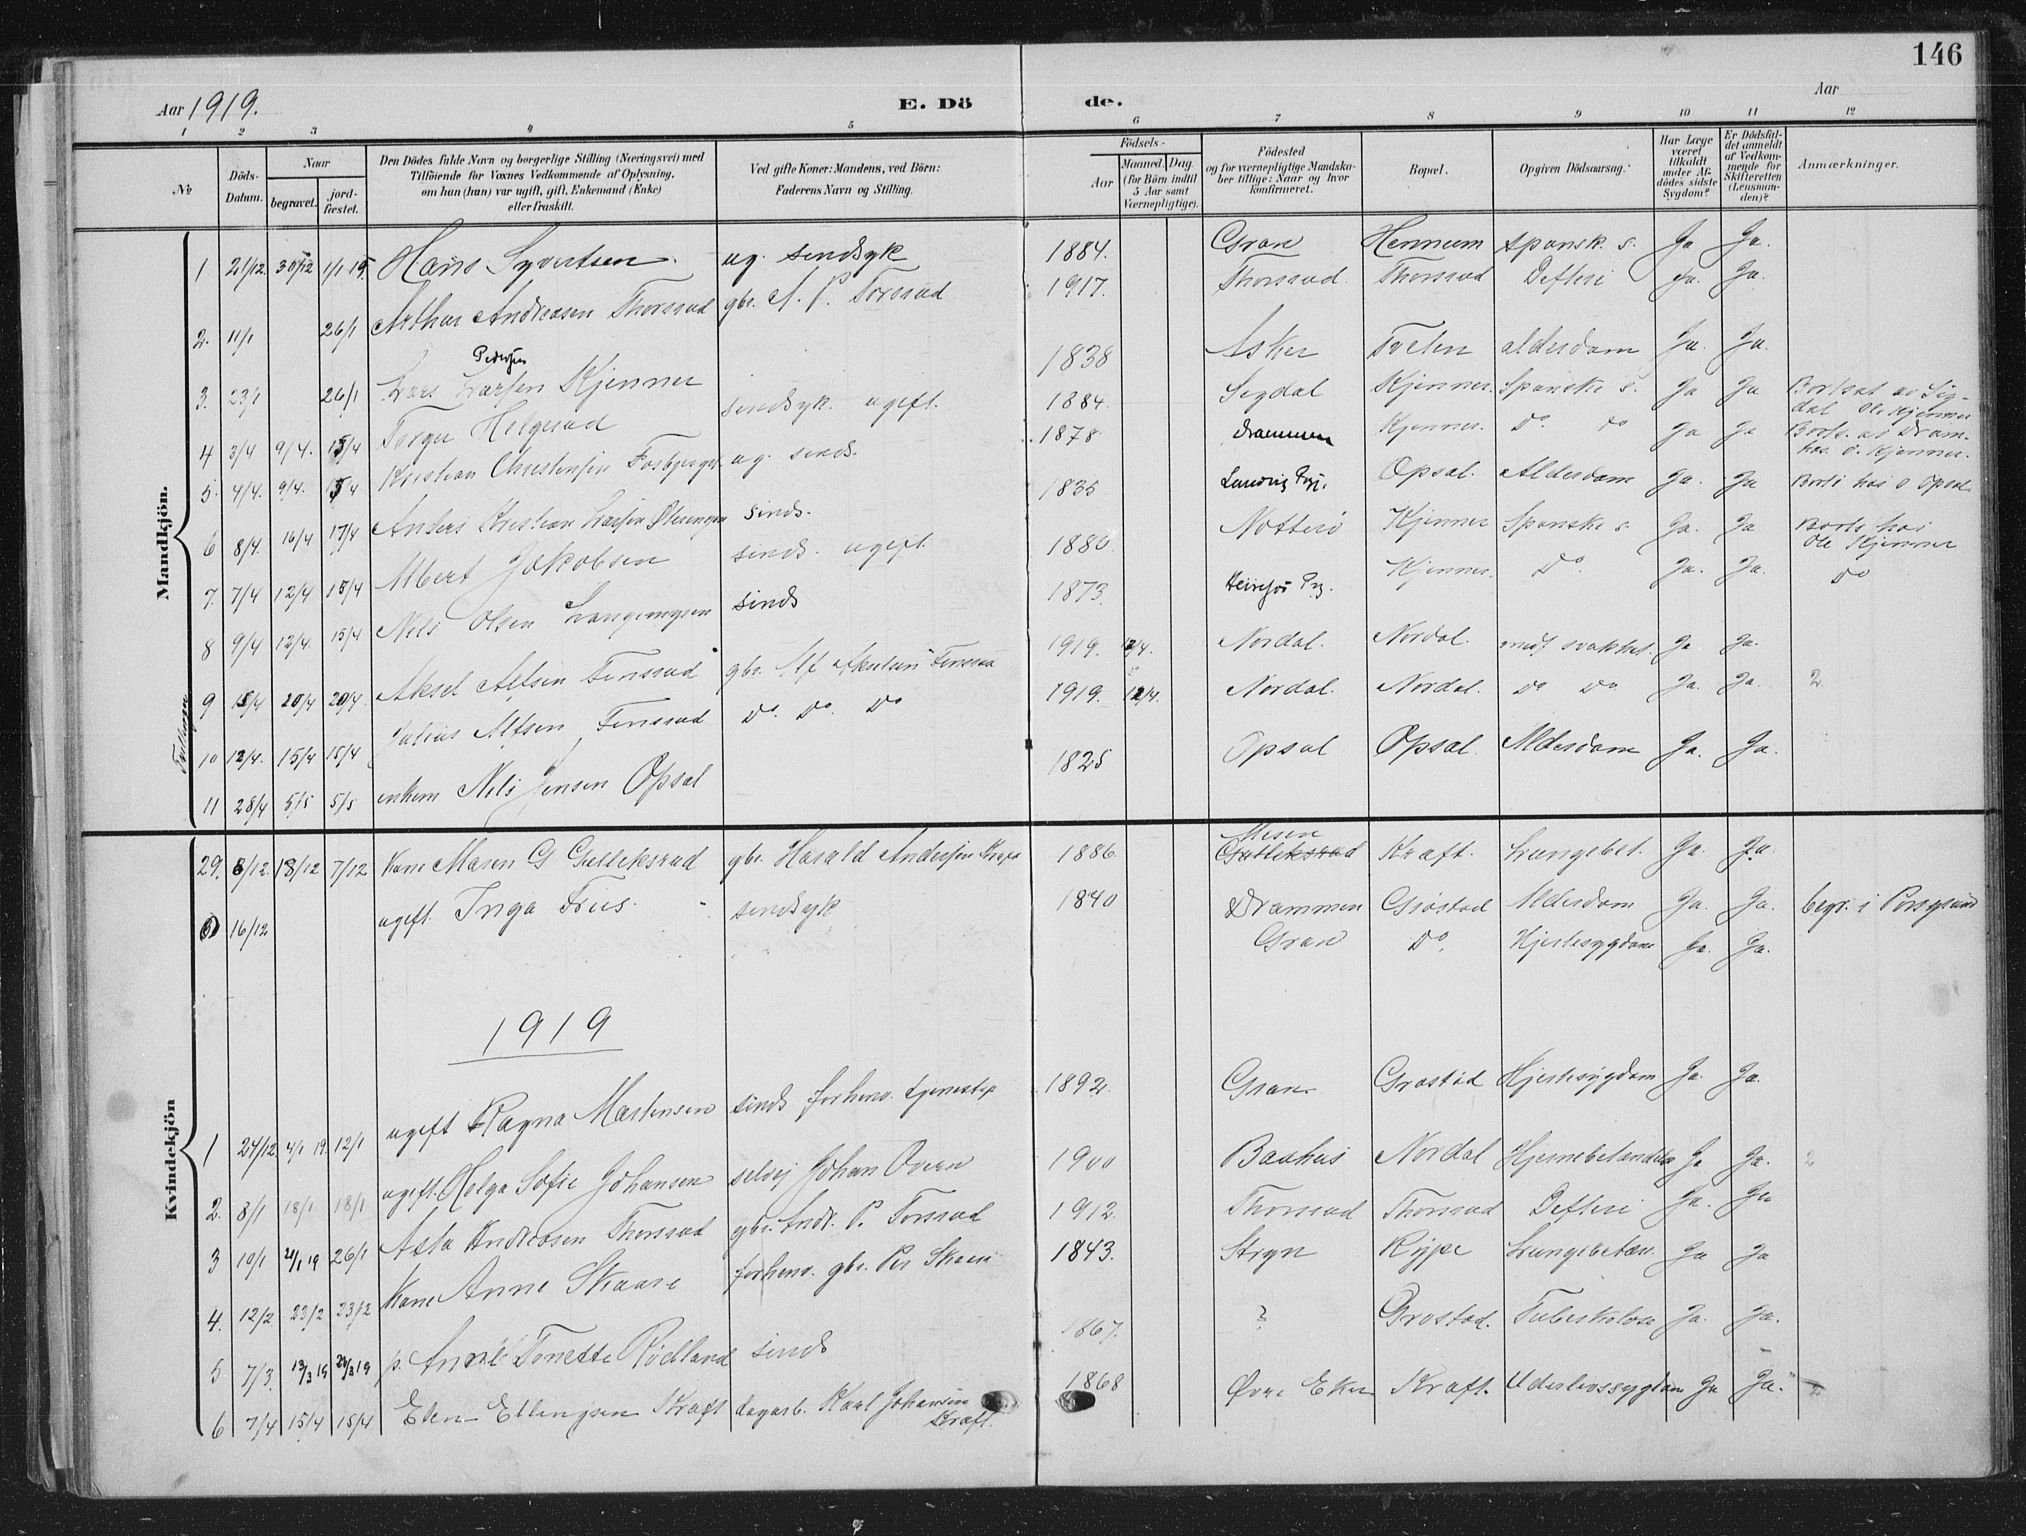 146
Aar 1919.
E. Dö de.
Aar
1 2 3 4 5 6 7 8 9 10 11 12
No
Döds-Datum.
Naar
begravet.
jord-fæstet.
Den Dödes fulde Navn og borgerlige Stilling (Næringsvei) med
Tilföiende for Voxnes Vedkommende af Oplysning,
om han (hun) var ugift, gift, Enkemand (Enke)
eller fraskilt.
Ved gifte Koner: Mandens, ved Börn:
Faderens Navn og Stilling.
Födsels-
Aar
Maaned. Dag.
(for Börn indtil
5 Aar samt
Værnepligtige).
Födested
og for værnepligtige Mandska-
ber tillige: Naar og hvor
konfirmeret.
Bopæl.
Opgiven Dödsaarsag.
Har Læge
været
tilkaldt
under Af-
dödes sidste
Sygdom?
Er Dödsfal-
det anmeldt
af Vedkom-
mende for
Skifteretten
(Lensman-
den)?
Anmærkninger.
Mandkjön.
1 21/12 30/12 1/1 19 Hans Syvertsen. ug. sindsyk 1884. Gran Hennum spansk. s. Ja Ja.
2. 11/1 26/1 Arthur Andreasen Thorsrud gbr. A. P. Torsrud 1917. Thorsrud. Thorsrud Difteri Ja. Ja.
Pedersen
3. 23/1 26/1 Lars Larsen Kjenner 1838 Asker Tveten alderdom Ja. Ja.
4 3/4 9/4. 15/4 Torger Helgerud sindsyk. ugift. 1884. Sigdal Kjenner. Spanske s. Ja Ja Bortsat av Sig-
dal Ole Kjenner
5. 4/4. 9/4. 15/4 Kristian Christensen ug. sinds. 1878. Drammen Kjenner. Do do Ja Ja Borts. av Dram.
hos O. Kjenner.
6 8/4. 16/4 17/4 Anders Kristian Larsen sinds. 1835 Opsal. Alderdom Ja. Ja hos O Opsal
7. 7/4 12/4 15/4 Albert Jakobsen sinds. ugift. 1880. Nötterö Kjenner Spanske s. Ja. Ja Borts. hos
Ole Kjenner
8 9/4 12/4. 15/4 Nels Olsen Langemyren sinds 1873. Kjenner. Do. Ja. Ja. Do
Tvillinger
9 15/4 20/4 20/4. Aksel Alfsen Finsrud gbr. Alf 1919. 12/4. Nordal. Nordal. medf. svakhet. Ja Ja.
10 12/4. 15/4 15/4 Julius Alfsen Finsrud Do. Do. Do 1919. 12/4. Nordal. Nordal. Do Do Ja. Ja. 2
11 28/4 5/5 5/5 enkem Nels Jensen Opsal 1825 Opsal Opsal. Alderdom Ja. Ja.
Kvindekjön
29. 8/12. 18/12 7/12 Kone Maren G Gulleksrud gbr. Harald Andersen Kraft 1886. Gulleksrud Kraft. Lungebet. Ja. Ja.
16/12 ugift. Inga Friis. sindsyk 1840 Drammen Grøstad Alderdom Ja. Ja. begr. i Porsgrund
Gran Do. Hjertesygdom Ja. Ja.
1919
1 24/12. 4/1 19. 12/1 ugift Ragna Martensen sinds forhenv. tjenestep 1892. Gran. Grøstad Hjertesygdom Ja. Ja.
2. 8/1 18/1 18/1 ugift. Helga Sofie Johansen selvej Johan Overn 1900 Baahus Nordal Hjernebetændelse Ja Ja. 2
3 10/1 21/1 19 26/1 Asta Andreasen Thorsrud gbr. Andr. P. Torsrud 1912. Thorsrud Thorsrud Difteri Ja. Ja
4. 12/2. 23/2 23/2 Kone Anne Skaare forhenv. gbr. Per 1843. Stryn Rype Lungebetæn. Ja Ja
5 7/3. 13/3 19 p. Anne Tonette Rødland sinds 1867. ? Grøstad. Tuberkulose Ja. Ja.
6 7/4 15/4 15/4 Elen Ellingsen Kraft dagarb. Karl Johansen
Kraft. 1868 Øvre Eker Kraft. Underlivssygdom Ja Ja. 2